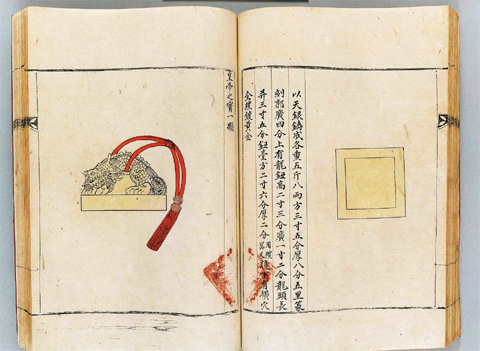 以天銀鑄成各重五斤八兩方三寸五分厚八分五里篆
刻郭廣四分上有龍鈕高二寸三分廣一寸二分龍頭長
幷三寸五分鈕臺方二寸六分厚二分 有橫穴
全體鍍黃金
皇帝之寶一顆